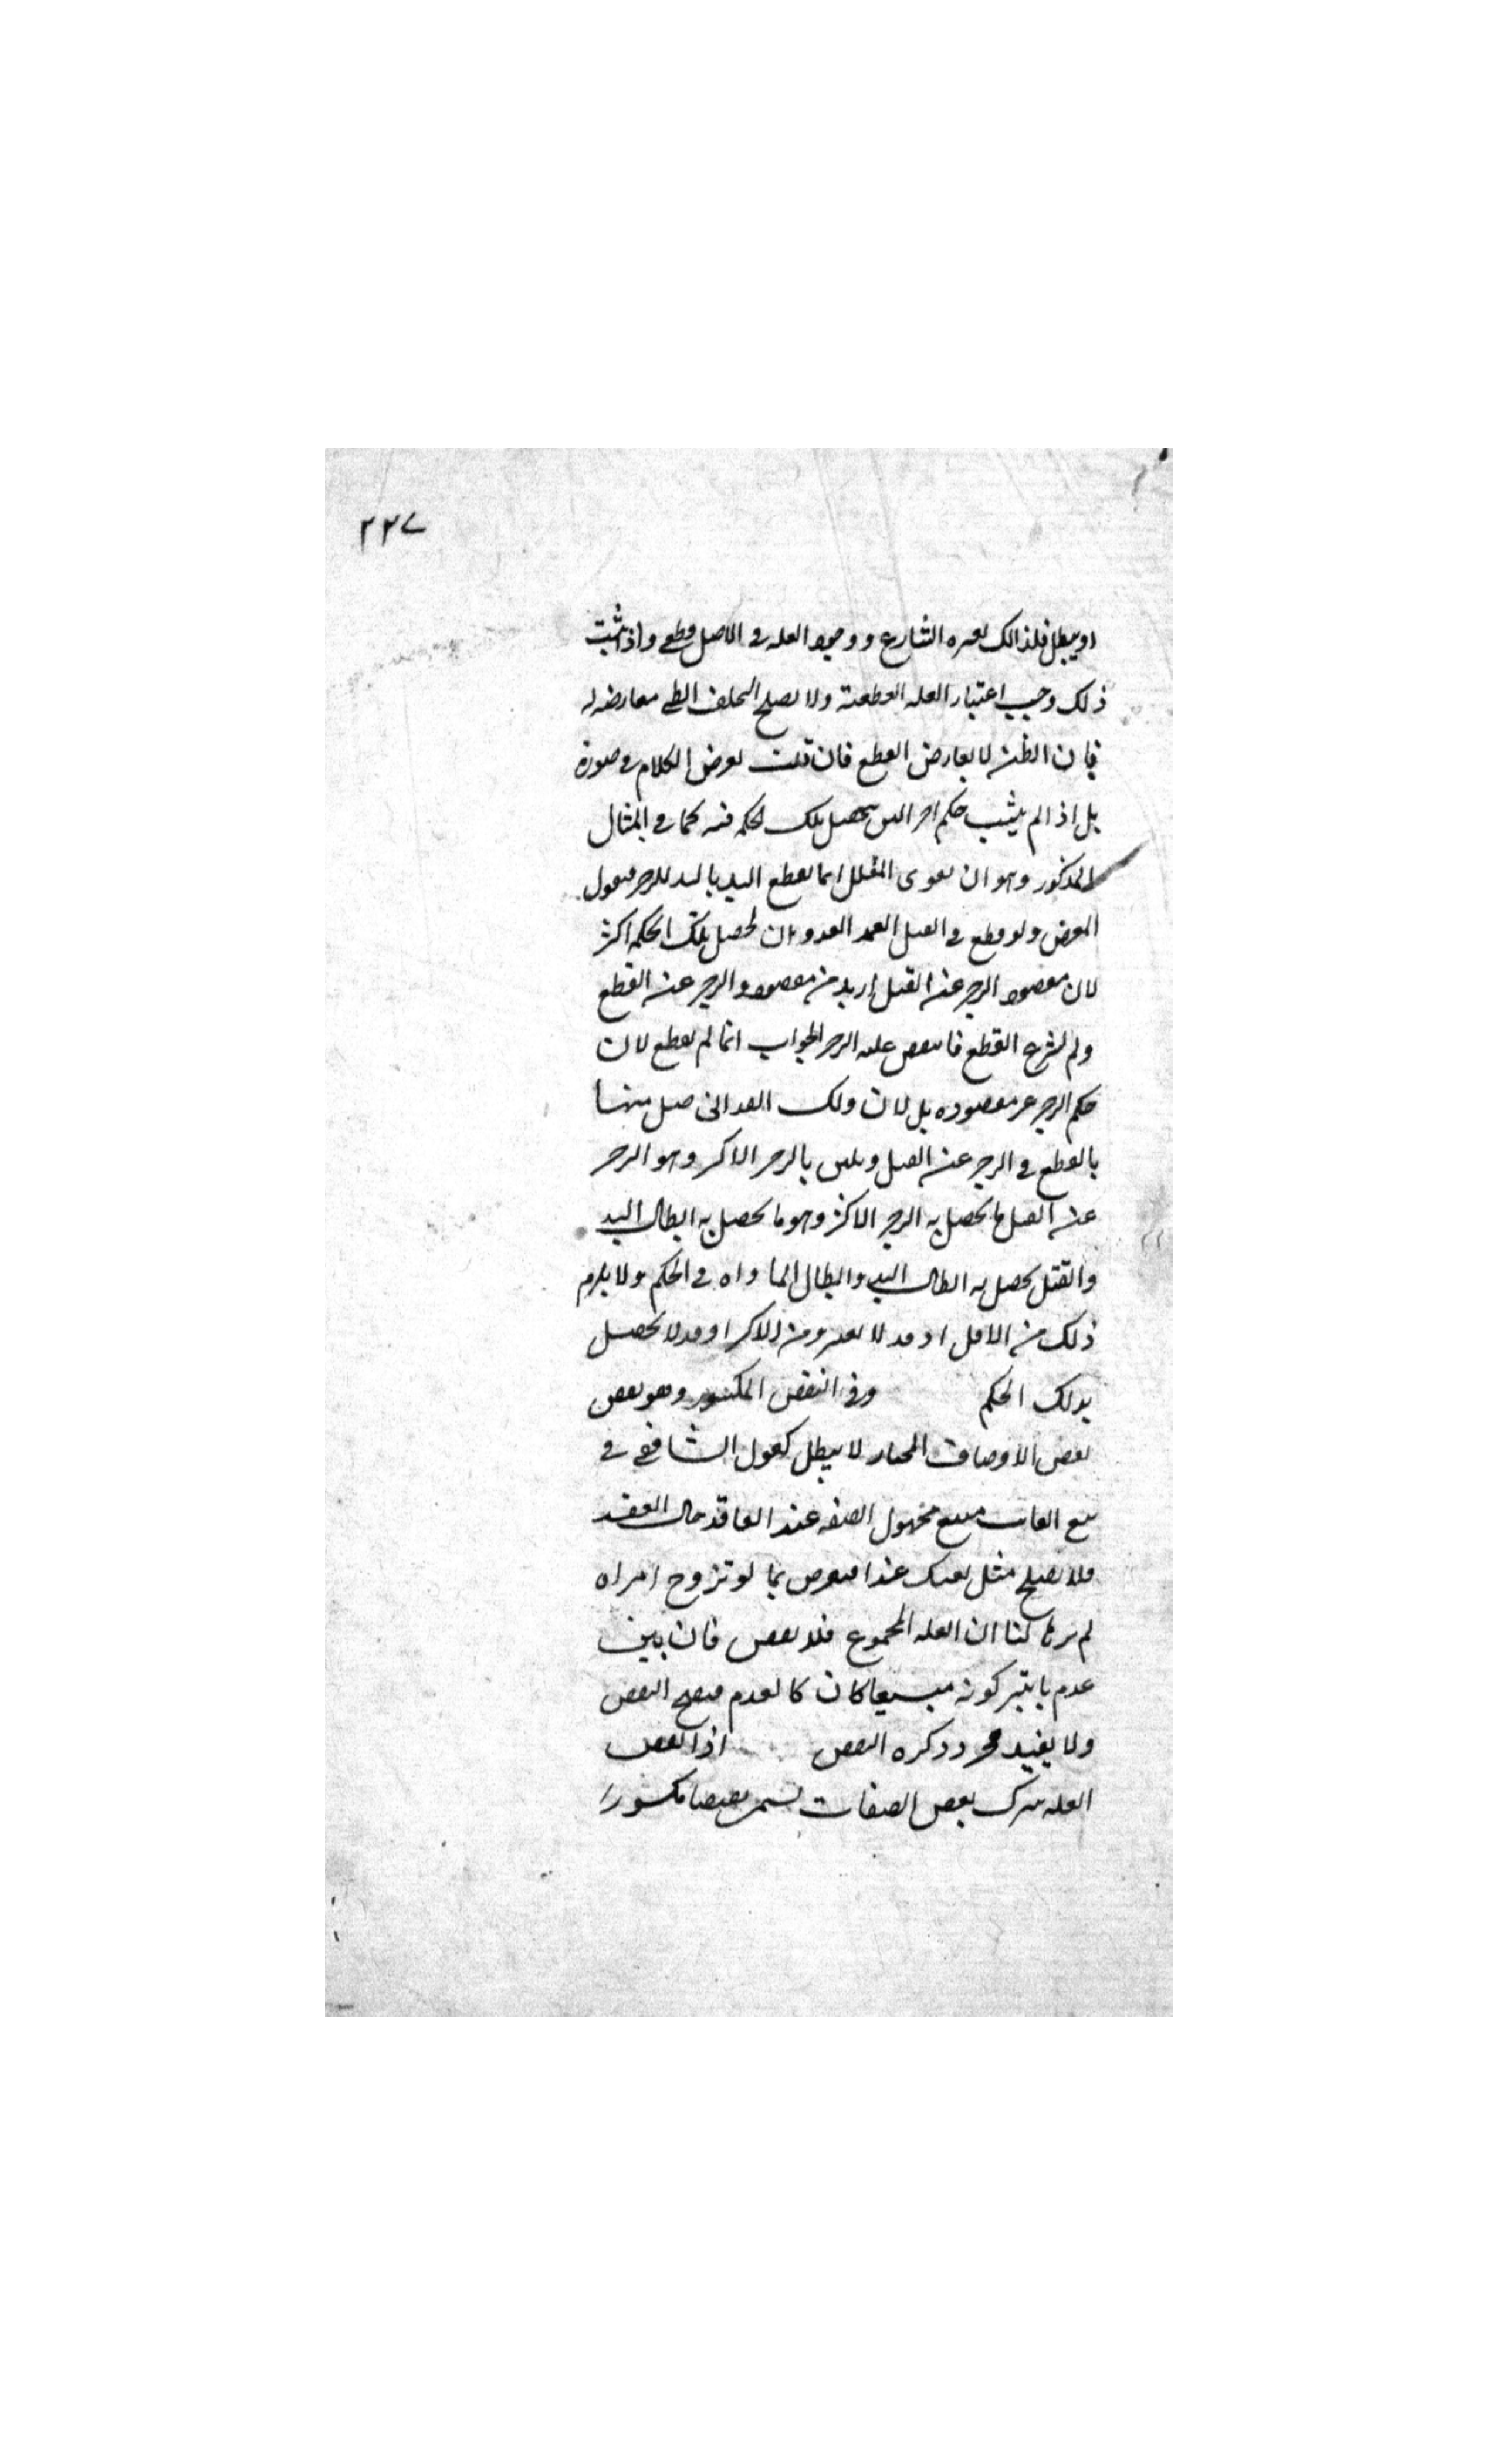 ٢٢٧
او يبطل فلذالك لعره الشارع ووجود العله فى الاصل قطعى واذا ثبت
ذلك وجب اعتبار العله القطعية ولا يصلح التخلف الظنى معارضه له
فان الظن لا يعارض القطع فان قلت يعرض الكلام فى صورة
بل اذا لم يثبت حكم اخر اليق بحصل تلك الحكمة فيه كما فى المثال
المذكور وهو ان يقوى المعلل انما يقطع اليد باليد للزجر فيقول
المعترض ولو قطع فى القتل العمد العدوان لحصل بتلك الحكمة اكثر
لان مقصود الزجر عن القتل ازيد من مقصود الزجر عن القطع
ولم يشرع القطع فانتقض عله الزجر الجواب انما لم يقطع لان
حكم الزجر عن مقصوده بل لان ولك صل منها
بالقطع فى الزجر عن القتل ويليق بالزجر الاكثر وهو الزجر
عن القتل ما يحصل به الزجر الاكثر وهو ما يحصل به ابطال اليد
والقتل يحصل به ابطال اليد وابطال فى الحكم ولا يلزم
ذلك من الاقل اذ قد لا يعتبر ومن الاكثر او قد لا يحصل
بذلك الحكم وفى النقض المكسور وهو نقض
بعض الاوصاف المختار لا يبطل كقول الشافعى فى
بيع الغائب مبيع مجهول الصفه عند العاقد حال العقد
فلا يصلح مثل بعتك عبدا فيعترض بما لو تزوج امراه
لم يرها لنا ان العله المجموع فلا نقض فان بين
عدم تاثير كونه مبيعا كان كالعدم فيصح النقض
ولا يفيد مجرد ذكره النقض اذا نقض
العله بترك بعض الصفات يسمى نقضا مكسورا